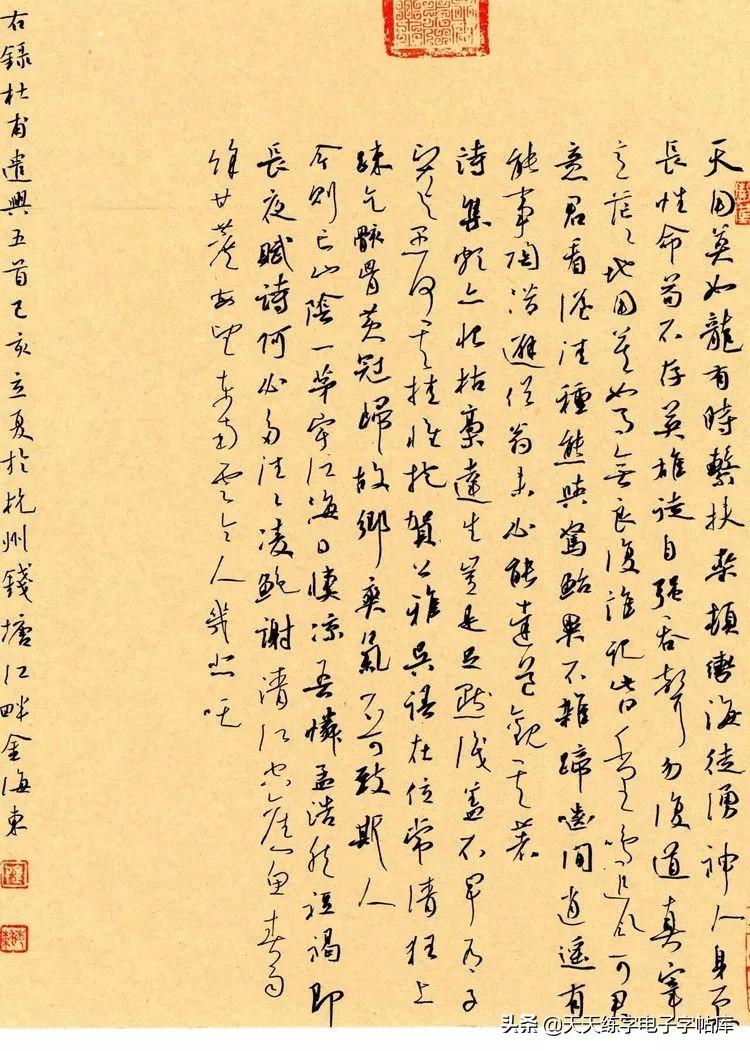 天用莫如龍有時繫扶桑頓轡海徒湧神人身更
長性命苟不存英雄徒自強吞聲勿復道真宰
意茫〻地用莫如馬無良復誰記此日千里鳴追風可君
意君看渥洼種態與駑駘異不雜蹄齧間逍遙有
能事陶潛避俗翁未必能達道觀其著
詩集頗亦恨枯槁達生豈是足默識蓋不早有子
賢與愚何其挂懷抱賀公雅吳語在位常清狂上
疎乞骸骨黃冠歸故鄉爽氣不可致斯人
今則亡山陰一茅宇江海日悽凉吾憐孟浩然裋褐即
長夜賦詩何必多往〻凌鮑謝清江空舊魚春雨
餘甘蔗每望東南雲令人幾悲吒
右録杜甫遣興五首己亥立夏於杭州錢塘江畔金海東
头条 @天天练字电子字帖库